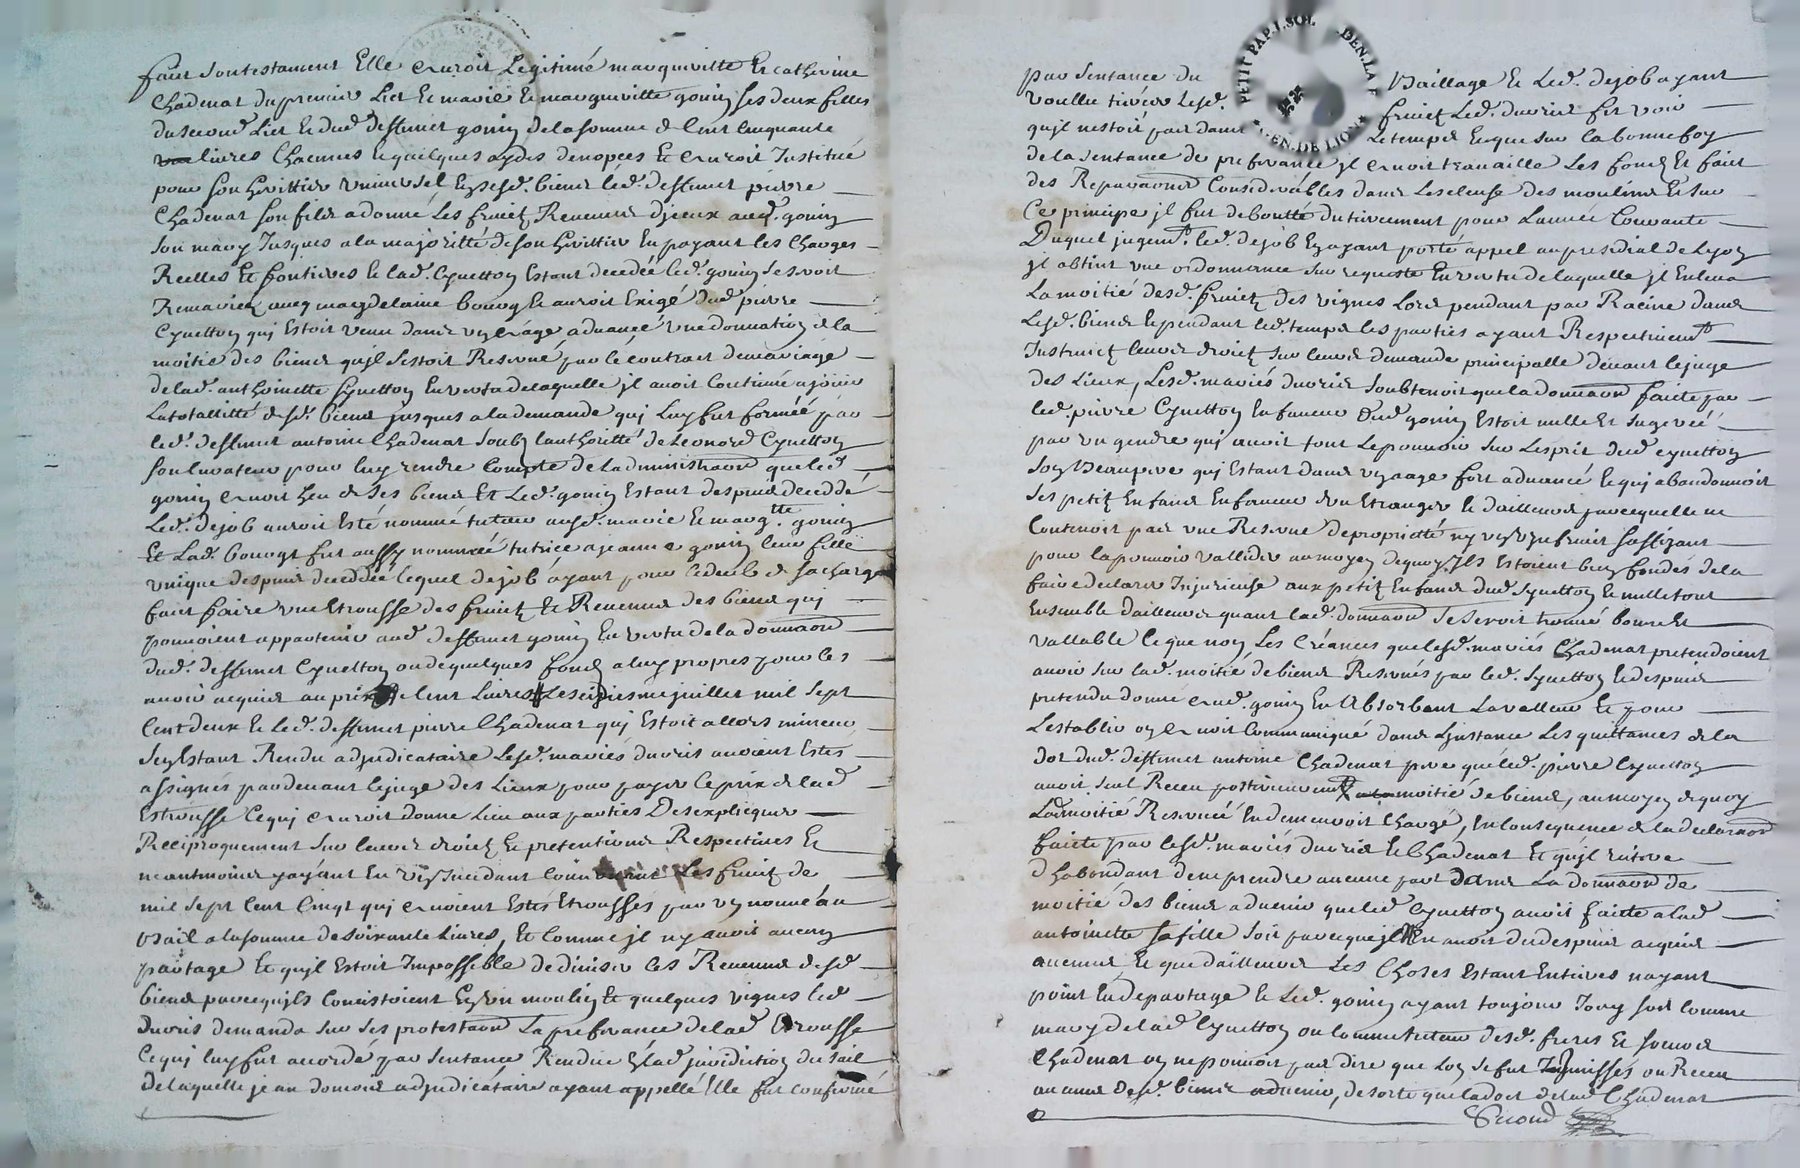 faict son testament Elle auroit Legitimé marquiritte Et catherine
Chadenat du premier Lict Et marie Et marguiritte gonin ses deux filles
du second Lict Et dud deffunct gonin de la somme de Cent Cinquante
livres Chacunes Et quelques aydes de nopces Et auroit Institué
pour son hérittier universel Ezd. biens led. deffunct pierre
Chadenat son fils a donné Les fruictz Revenus d'jceux aud. gonin
son mary Jusques a la majoritté de son hérittier En payant les Charges
Reelles Et fontieres Et lad. Cynetton Estant decedée led. gonin se seroit
Remariez avec magdelaine bouog Et auroit Exigé dud pierre
Cynetton qui Estoit venu dans un aage advancé une donnation de la
moitie des biens qu'jl s'estoit Reservé par le contract de mariage
de lad. anthoinette Cynetton En vertu de laquelle jl avoit Continué a jouir
La totallitté desd. biens jusques a la demande qui Luy fut forméé par
led. deffunct antoine Chadenat soubz l'authoritté de Leonord Cynetton
son Curateur pour luy rendre Compte de l'administraon que led
gonin avoit Heu de ses biens Et Led. gonin Estant despuis deceddé
Led. dejob auroit Esté nommé tuteur ausd. marie Et marg.tte gonin
Et Lad. bouogt fut aussy nommée tutrice a jeanne gonin leur fille
unique despuis deceddée Lequel dejob ayant pour le deub de sa charge
faict faire une Etrousse des fruictz Et Revenus des biens qui
pouvoient appartenir aud deffunct gonin En vertu de la donnaon
dud. deffunct Cynetton ou de quelques fondz a luy propres pour les
avoir acquis au prix de Cent Livres Le seiziesme juillet mil sept
Cent deux Et Led. deffunct pierre Chadenat qui Estoit allors mineur
s'en Estant Rendu adjudicataire Lesd. mariés duoris auroient Estés
assignés pardevant Le juge des Lieux pour payer Le prix de lad
Estrousse Ce qui auroit donne Lieu aux parties Des expliquer
Reciproquement sur leurs droictz Et pretentions Respectives Et
neantmoins ayant En un Jncidant Les fruictz de
mil sept Cent Cinq qui avoient Estés Etroussés par un nouveau
bail a la somme de soixante Livres, Et Comme jl ny avoit aucun
partage Et qu'jl Estoit Impossible de diviser les Revenus desd
biens parcequ'jls Concistoient En un moulin Et quelques vignes led
duoris demanda sur ses protestaons La preferance de lad Etrousse
Ce qui luy fut accordé par sentance Rendue En lad juridiction du sail
de laquelle jean adjudicataire ayant appellé Elle fut confirmé
par sentance du Baillage Et Led. dejob ayant
voullu tirer Lesd. fruictz Led. duoris fit voir
qu'jl nestoit pas dans Le temps Et que sur la bonne foy
de la sentance de preferance jl avoit travaille Les fondz Et faict
des Reparaons Considerables dans Les cluse des moulins Et sur
Ce principe jl fut deboutté du tirement pour L'année Courante
Duquel jugemt. led. dejob En ayant porté appel au presidial de Lyon
jl obtint une ordonnance sur requeste En vertu de laquelle jl Enleva
La moitié desd. fruictz des vignes Lors pendant par Racine dans
Lesd. biens Et pendant led. temps les parties ayant Respectivemt.
Instruict leurs droictz sur leurs demande principalle devant le juge
des Lieux, Lesd. mariés duoris soubtenoit que la donnaon faicte par
led. pierre Cynetton En faveur dud gonin Estoit nulle Et sugeréé
par un gendre qui avoit tout Le pouvoir sur L'esprit dud Cynetton
son Beaupere qui Estant dans un aage fort advancé Et qui abandonnoit
ses petitz Enfans En faveur d'un Etranger Et d'ailleurs parcequ'elle ne
Contenoit pas une Reserve de propriété ny un usufruict suffizant
pour la pouvoir vallider au moyen de quoy jls Estoient bien fondés de la
faire declarer Injurieuse aux petitz Enfans dud Cynetton Et nulle tout
Ensemble d'ailleurs quant lad. donnaon se seroit trouvé bonne Et
vallable Ce que non Les Créances que lesd. mariés Chadenat pretendoient
avoir sur lad. moitié de biens Reservés par led. Cynetton Et despuis
pretendu donné aud. gonin En Absorbent La valleur Et pour
L'establir on avoit Communiqué dans L'jnstance Les quittances de la
dot dud. deffunct antoine Chadenat pere que led. pierre Cynetton
avoit seul Receu posterieurement moitié de biens, au moyen de quoy
Lad moitié Reservéé En demeuroit Chargé, En Consequence de la declaraon
faicte par lesd. mariés duoris Et Chadenat Et qu'jl reitere
d'habondant de ne prendre aucune part Dans La donnaon de
moitié des biens advenir que led Cynetton avoit faicte a lad
antoinette sa fille soit parceque jl N'en avoit du despuis acquis
aucuns Et que d'ailleurs Les Choses Estant Entieres n'ayant
point Eu de partage Et Led. gonin ayant toujour Jouy soit Comme
mary de lad Cynetton ou Comme tuteur desd. freres Et soeurs
Chadenat on ne pouvoit pas dire que L'on se fut Jmmissés ou Receu
aucuns desd. biens advenir, de sorte que la dot de lad Chadenat
Second
PETIT PAP. 1. SOL DEN. LA F
GEN. DE LION